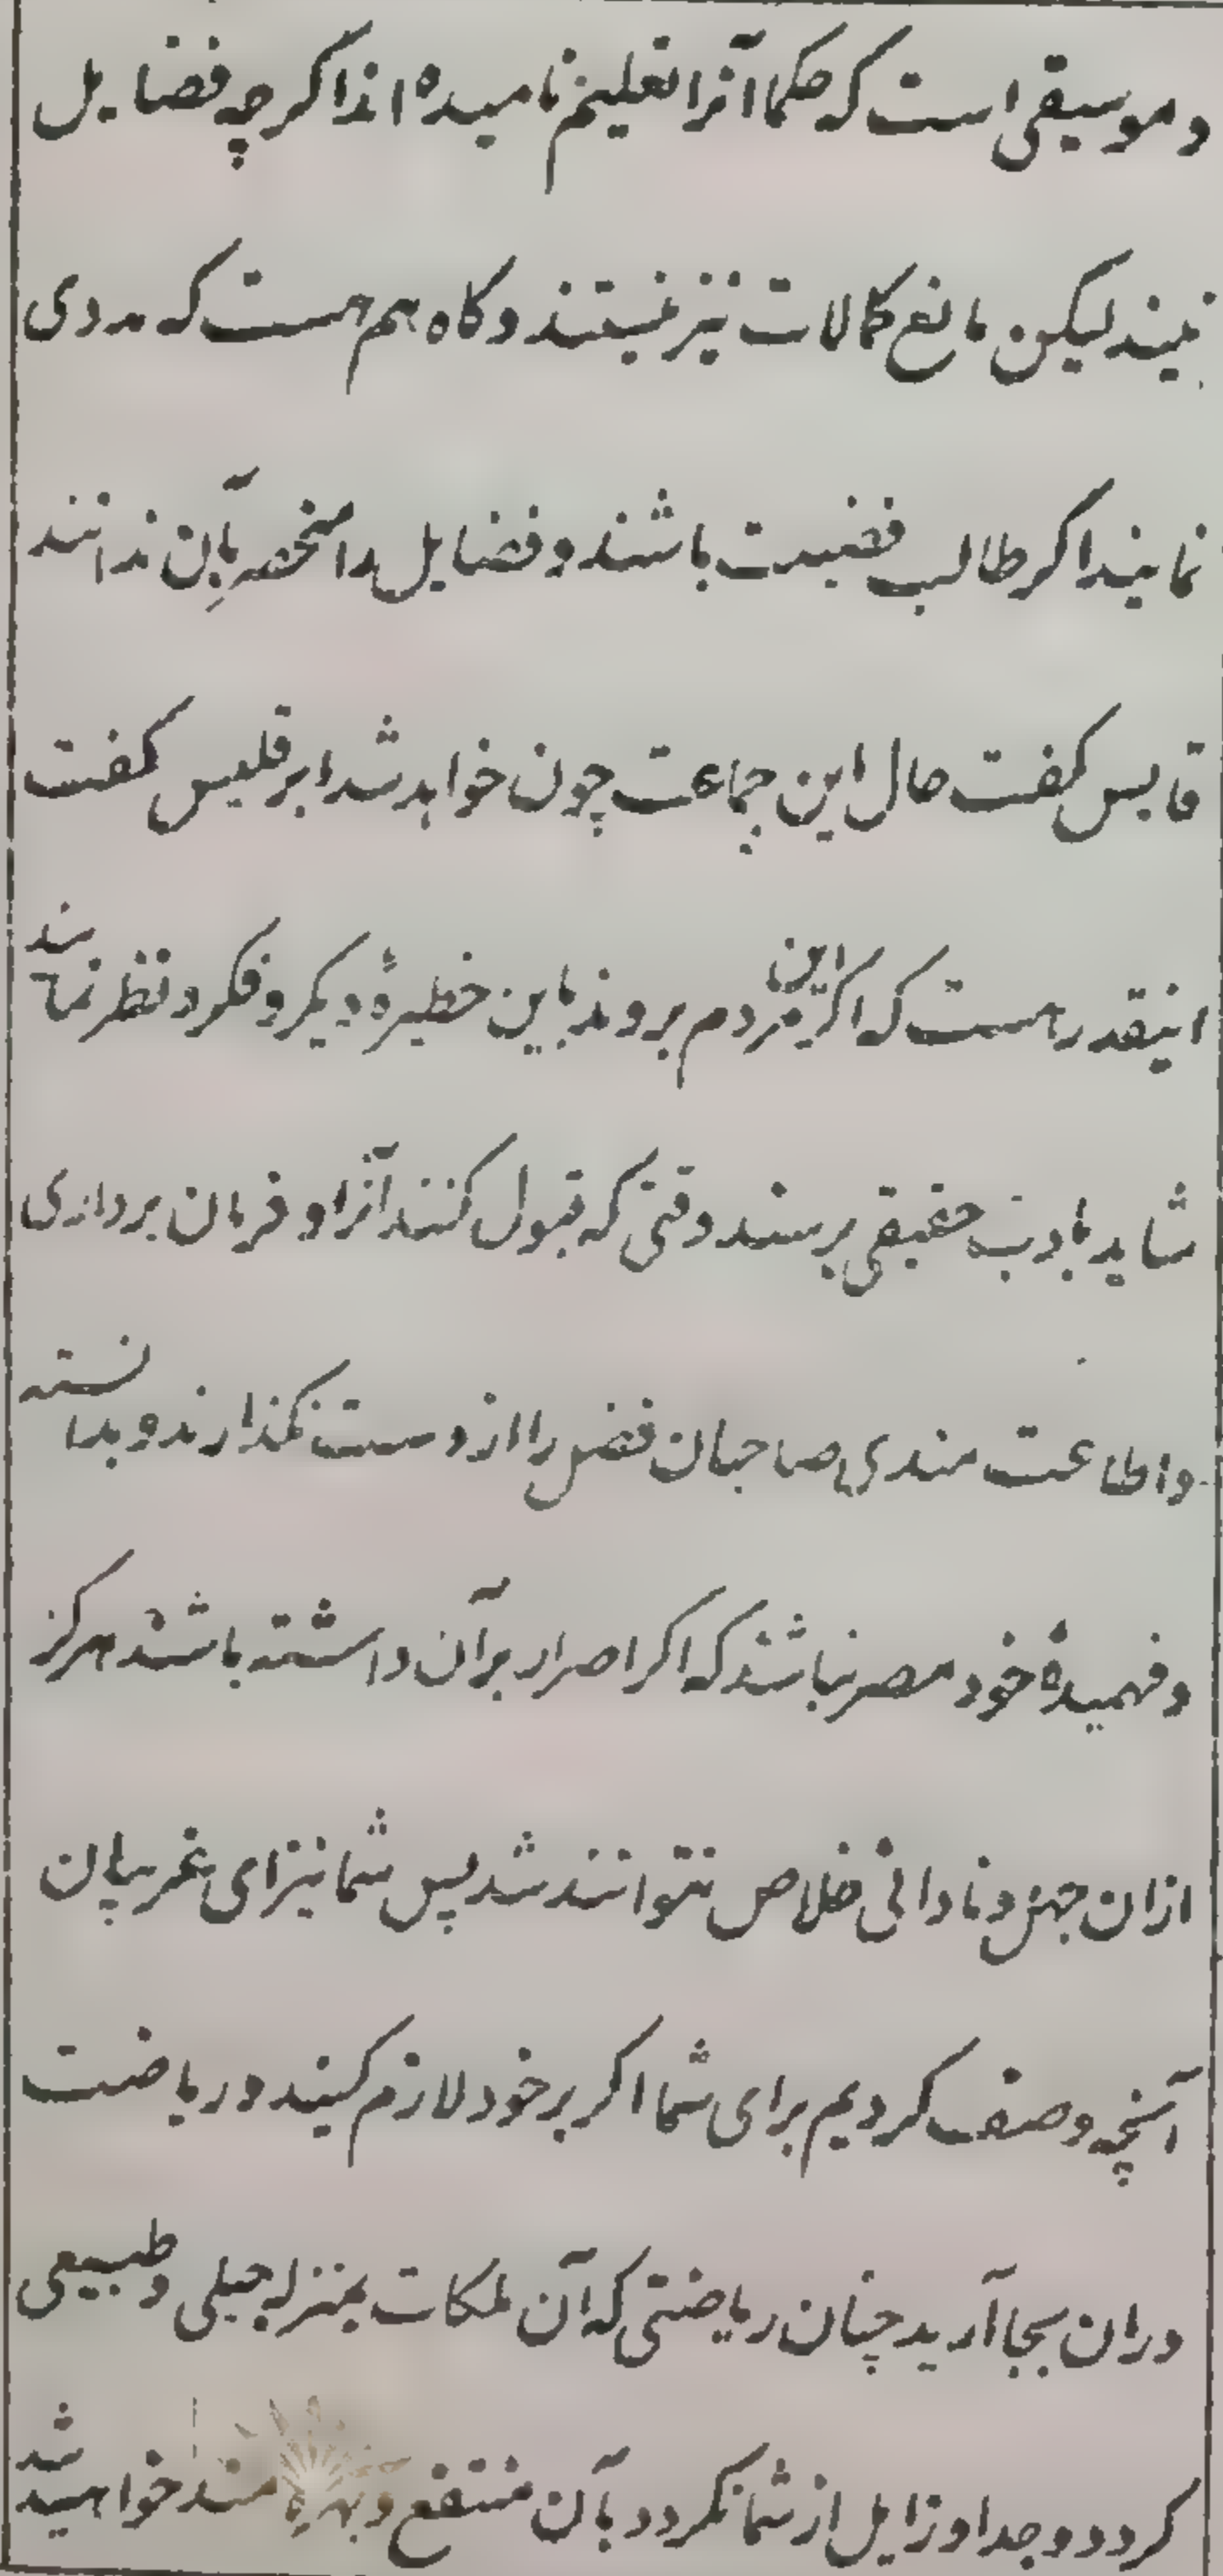 و موسیقی است که حکما آنرا تعلیم نامیده اند اکرچه فضایل
نیند لیکن مانع کمالات نیز نیستند و کاه هم هست که مددی
نمایند اکر طالب فضیلت باشند و فضایل را منحصر بآن ندانند
قابس کفت حال این جماعت چون خواهد شد ابرقلیس کفت
اینقدر هست که اکر این مردم بروند باین خطیرهٔ دیکر و فکر و نظر نمایند
شاید بادب حقیقی برسند وقتی که قبول کنند آنرا و فرمان برداری
و اطاعت مندی صاحبان فضل را از دست نکذارند و بدانسته
و فهمیدهٔ خود مصر نباشند که اکر اصرار برآن داشته باشند هرکز
ازان جهل و نادانی خلاص نتوانند شد پس شما نیز ای غریبان
آنچه وصف کردیم برای شما اکر بر خود لازم کنید و ریاضت
دران بجا آرید چنان ریاضتی که آن ملکات بمنزله جبلی و طبیعی
کردد و جدا و زایل از شما نکردد بآن منتفع و بهره مند خواهید شد